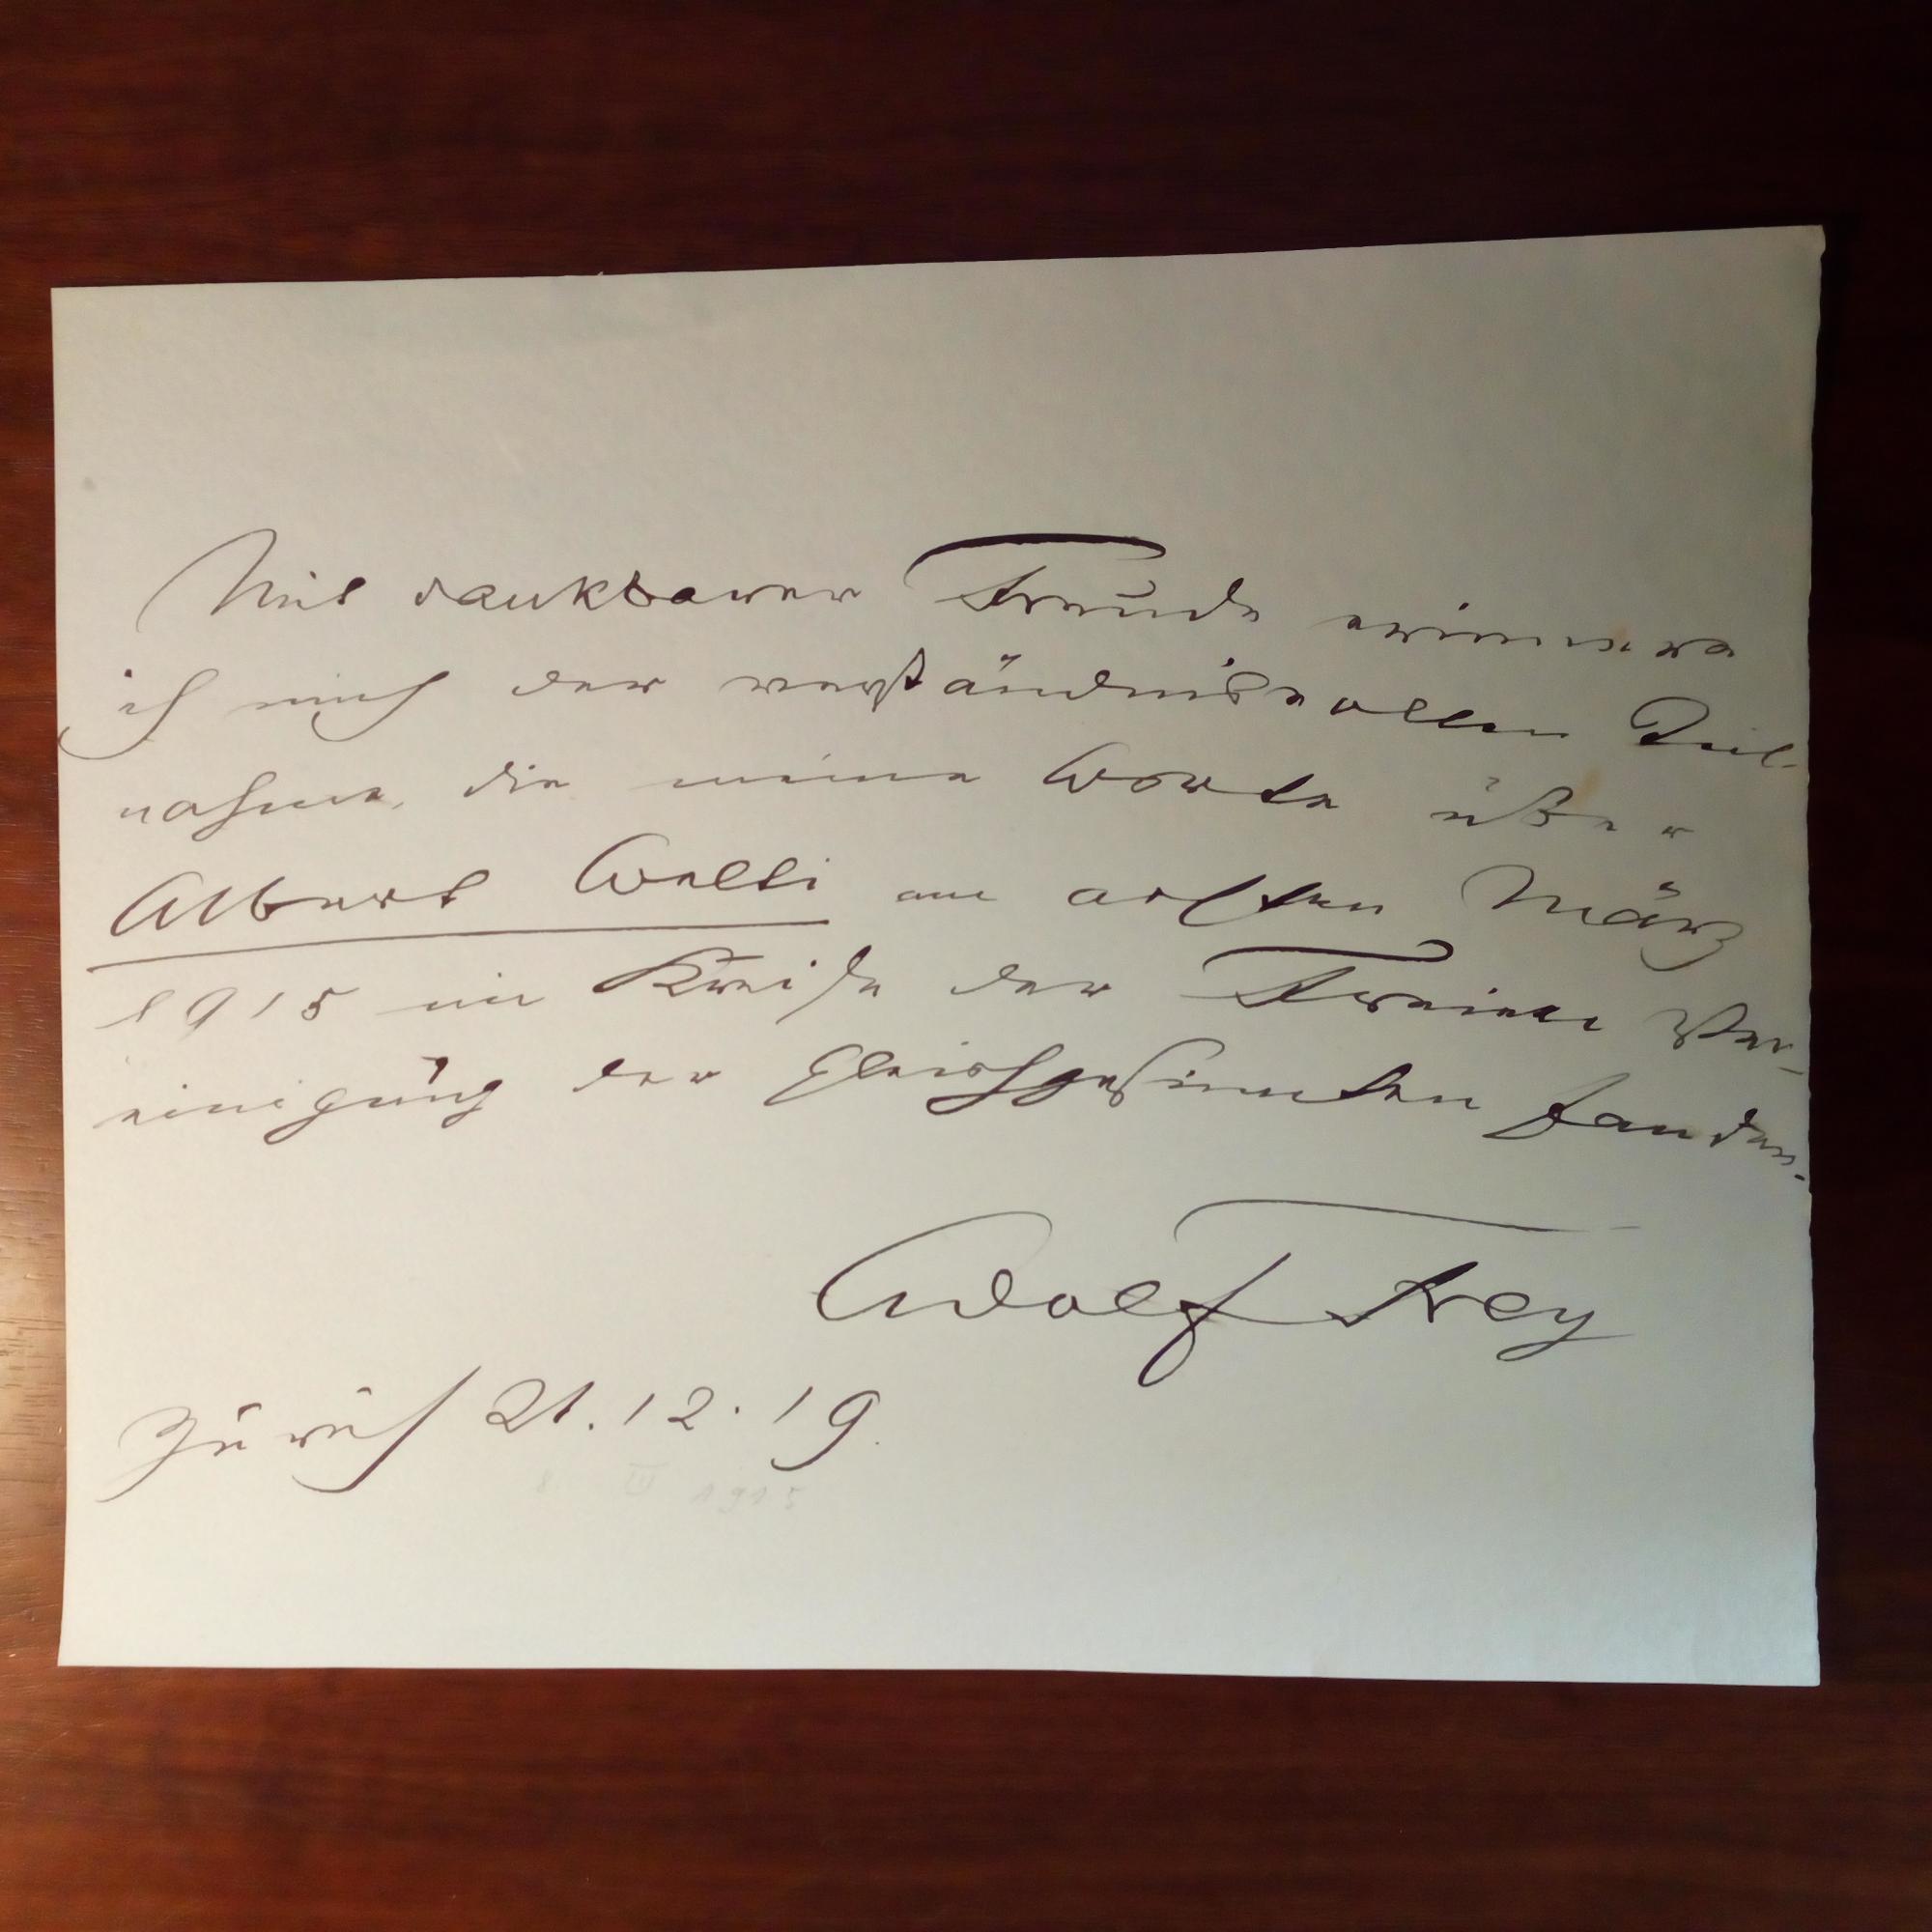 Mit dankbarer Freude erinnere
ich mich der verständnisvollen Teil-
nahme, die meine Worte über
Albert Welti am achten März
1915 im Kreise der Freien Ver-
einigung der Gleichgesinnten fanden.
Adolf Frey
Zürich 21.12.19.
8 III 1915